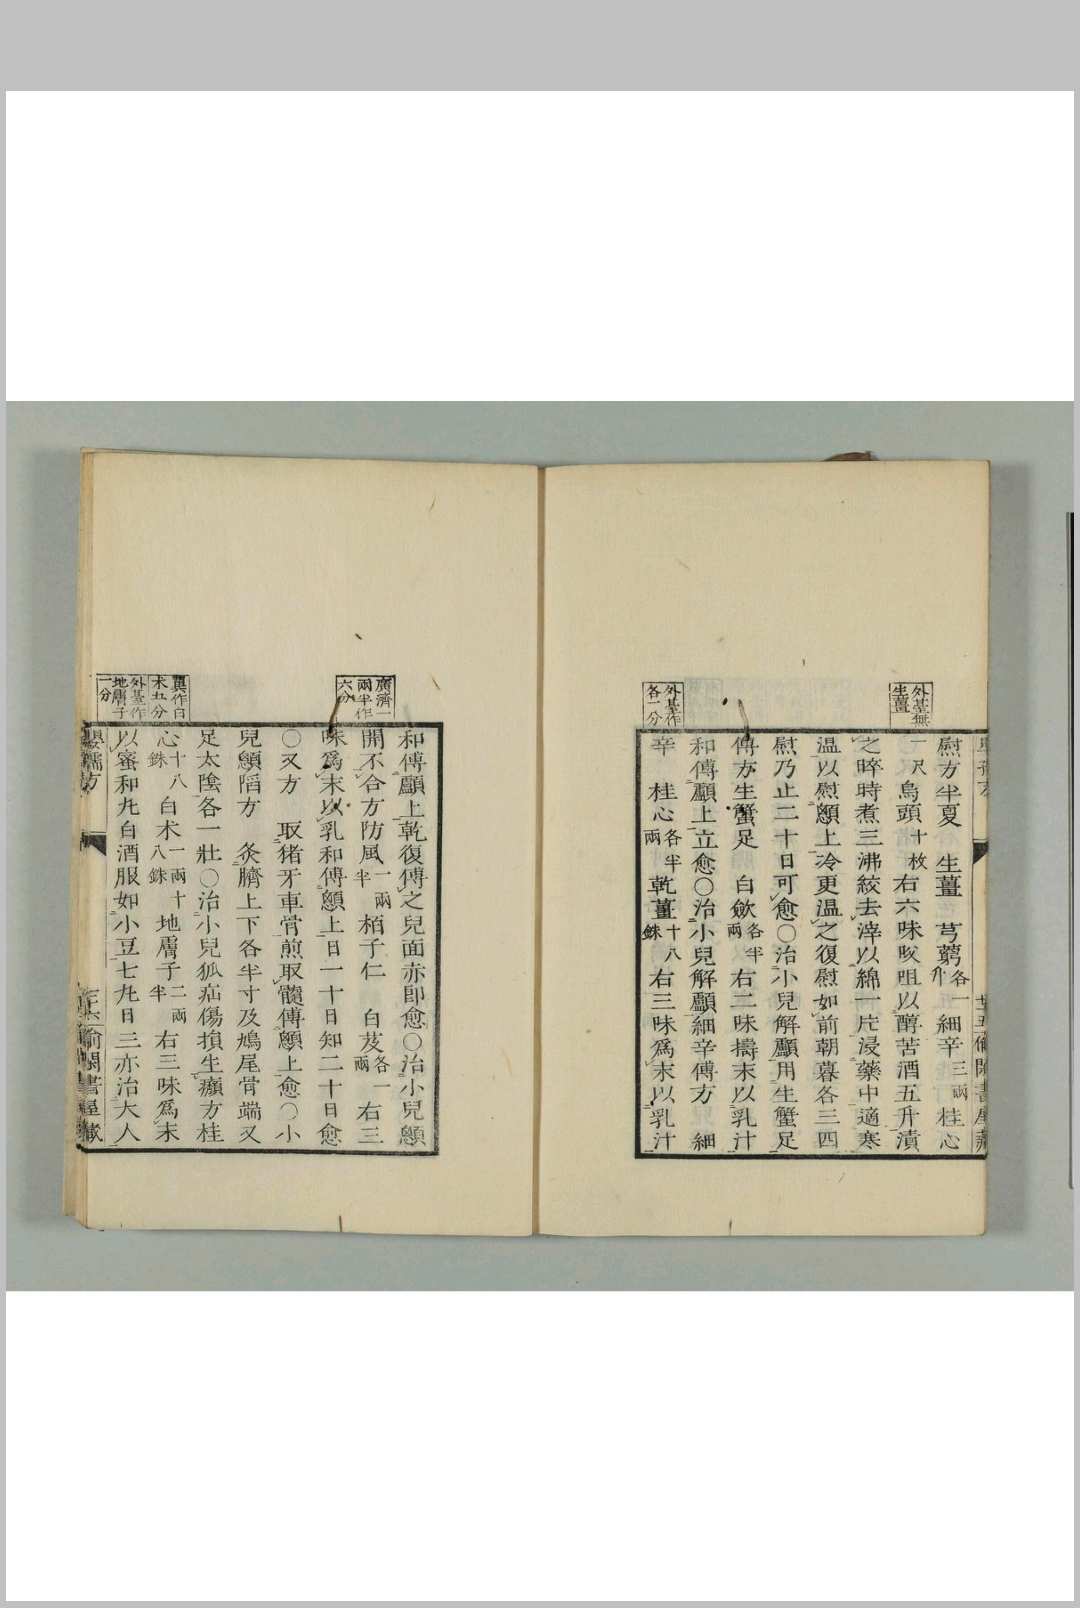 外臺無
生薑
外臺作
各一分
熨方半夏　生薑　芎藭各一升　細辛三兩　桂心
一尺烏頭十枚右六味㕮咀以醇苦酒五升漬
之晬時煮三沸絞去滓以綿一片浸藥中適寒
温以熨顖上冷更温之復熨如前朝暮各三四
熨乃止二十日可愈○治小兒解顱用生蟹足
傅方生蟹足　白歛各半兩右二味擣末以乳汁
和傅顱上立愈○治小兒解顱細辛傅方　細
辛　桂心各半兩乾薑十八銖右三味爲末以乳汁
廣濟一
兩半作
六分
翼作白
朮五分
外臺作
地膚子
一分
和傅顱上乾復傅之兒面赤卽愈○治小兒顖
開不合方防風一兩半栢子仁　白芨各一兩右三
味爲末以乳和傅顖上日一十日知二十日愈
○又方　取猪牙車骨煎取髓傅顖上愈○小
兒顖䧟方　灸臍上下各半寸及鳩尾骨端又
足太陰各一壯○治小兒狐疝傷損生癩方桂
心十八銖白朮一兩十八銖地膚子二兩半右三味爲末
以蜜和丸白酒服如小豆七丸日三亦治大人
嬰孺方